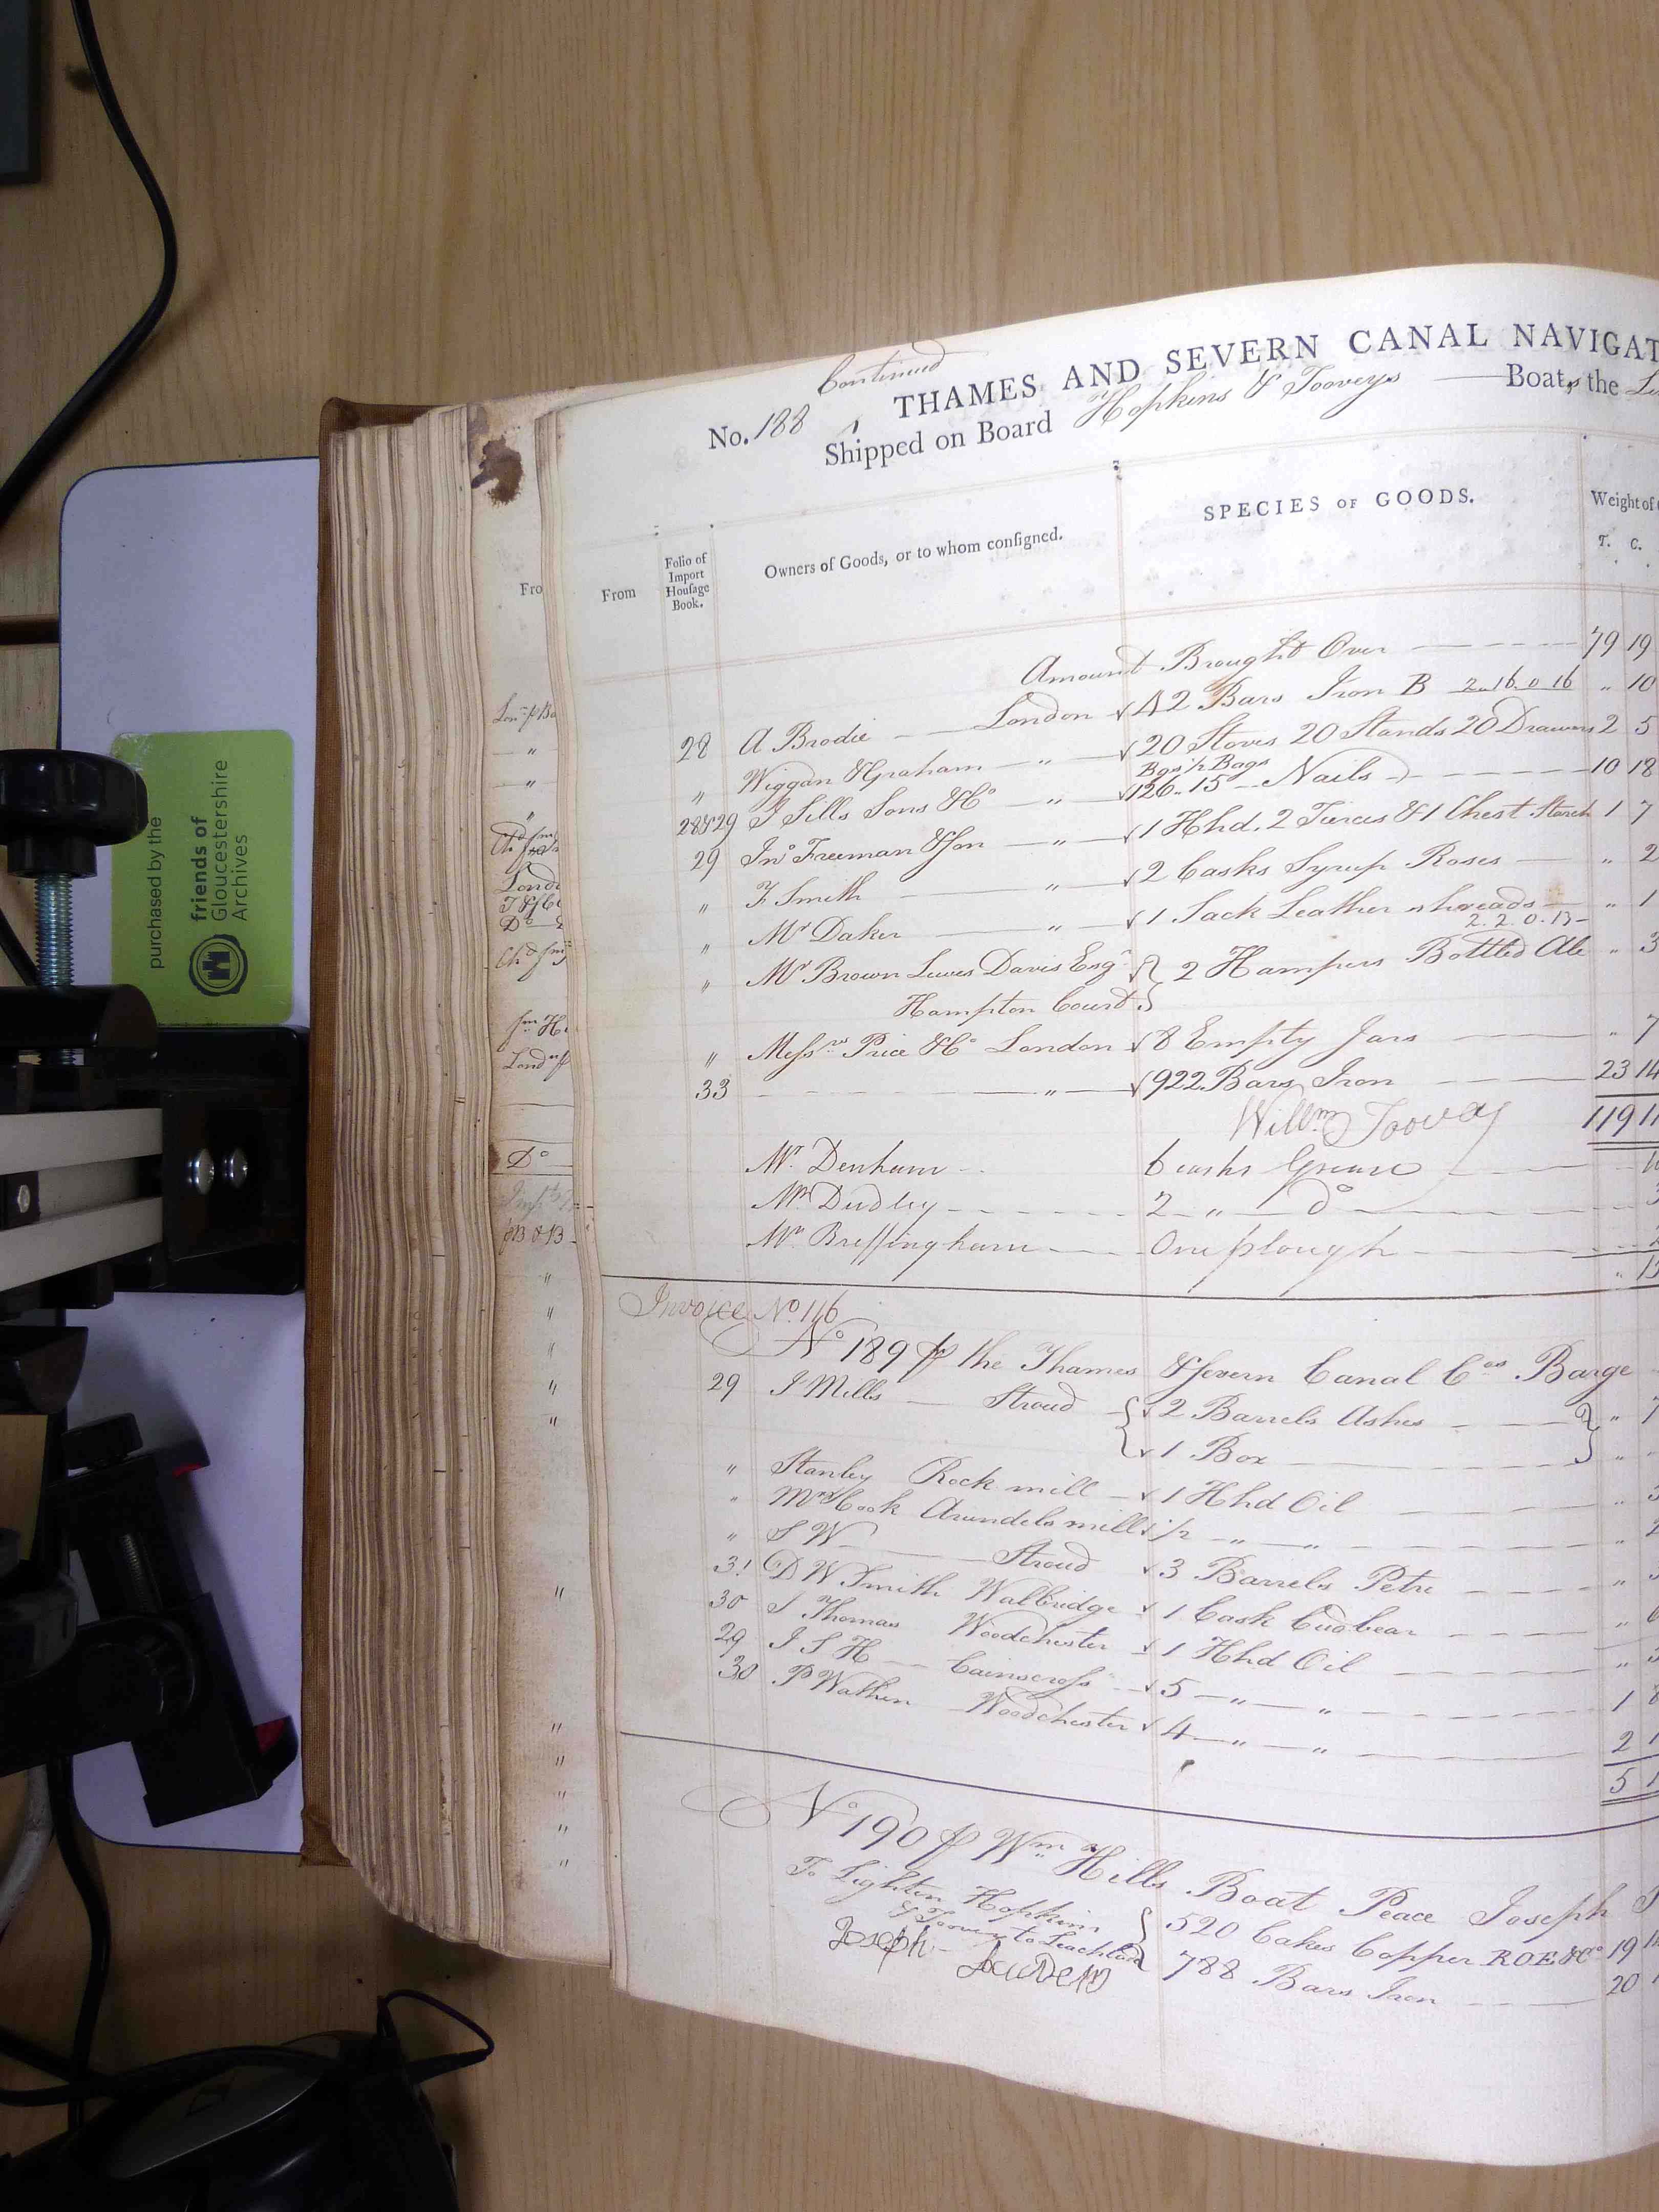 Continued
THAMES AND SEVERN CANAL NAVIGAT
No. 188 Shipped on Board Hopkins & Tooveys Boat, the
From
Folio of Import Housage Book.
Owners of Goods, or to whom consigned.
SPECIES OF GOODS.
Weight of
T. C.
Amount Brought Over 79 19
28 A Brodie London 42 Bars Iron B 2.16.0 16 " 10
" Wiggan & Graham " 20 Stoves 20 Stands 20 Drawers 2 5
Bgs ½ Bags
28&29 J Sills Sons & Co " 126.. 15 Nails 10 18
29 Jno Freeman & Son " 1 Hhd. 2 Tierces & 1 Chest Starch 1 7
" F Smith " 2 Casks Syrup Roses " 2
" Mr Daker " 1 Sack Leather shreads " 1
2 2 0.13
" Mr Brown Lewes Davis Esqr 2 Hampers Bottled Ale " 3
Hampton Court
" Messrs Price & Co London 8 Empty Jars " 7
33 " 922 Bars Iron 23 14
Willm Toovey 119 11
Mr. Denham 6 casks Grease
Mr Dudley 2 " do
Mr Bressingham One plough
Invoice No. 116
No 189 P the Thames & Severn Canal Cos Barge
29 J Mills Stroud 2 Barrels Ashes " 7
1 Box "
" Stanley Rock mill 1 Hhd Oil "
" Mr Cook Arundels mill ½ " "
" S W Stroud 3 Barrels Petre "
31 D W Smith Walbridge 1 Cask Cudbear " 6
30 S Thomas Woodchester 1 Hhd Oil "
29 J S H Cainscross 5 " " 1 8
30 P Wathen Woodchester 4 " " 2 1
5 1
No 190 P Wm Hills Boat Peace Joseph
To Lighten Hopkins
& Toovey to Leachlade
520 Cakes Copper ROE & Co 19
788 Bars Iron 20
Joseph
Fro
London
Do
Do
purchased by the
friends of
Gloucestershire
Archives